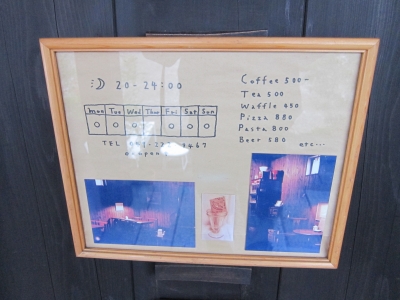 20-24:00
Mon Tue Wed Thu Fri Sat Sun
○ ○ ○ ○ ○ ○
TEL
Coffee 500~
Tea 500
Waffle 450
Pizza 880
Pasta 800
Beer 580
etc...